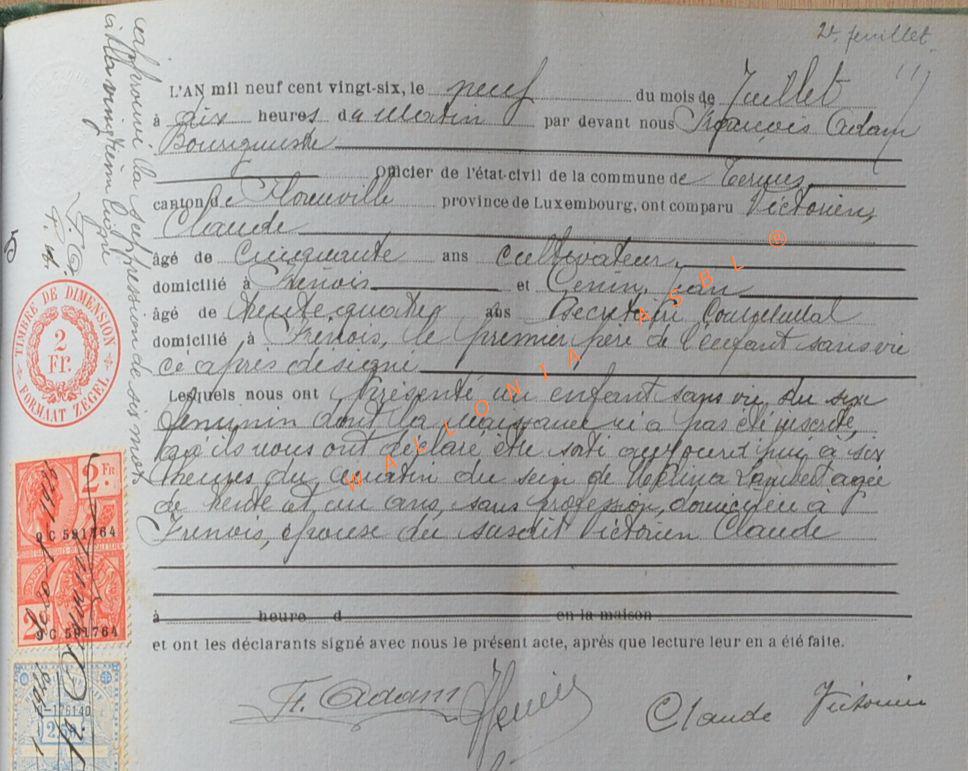 2e feuillet
L'AN mil neuf cent vingt-six, le neuf du mois de Juillet
à dix heures du matin par devant nous François Adam
Bourgmestre
Officier de l'état-civil de la commune de Termes,
canton de Florenville province de Luxembourg, ont comparu Victorien,
Claude
âgé de cinquante ans cultivateur,
domicilié à Frenois et Génin, Jean
âgé de trente quatre ans Secrétaire Communal
domicilié à Frenois, le premier père de l'enfant sans vie
ci après désigné
Lesquels nous ont présenté un enfant sans vie du sexe
féminin dont la naissance n'a pas été inscrite,
qu'ils nous ont déclaré être sorti aujourd'hui à six
heures du matin du sein de Lambert agée
de trente et un ans, sans profession, domiciliée à
Frenois, épouse du susdit Victorien Claude
à heure d en la maison
et ont les déclarants signé avec nous le présent acte, après que lecture leur en a été faite.
F. Adam
Claude Victorien
approuvé la suppression de six mots
à la vingtième ligne
F. A.
TIMBRE DE DIMENSION
2 Fr.
FORMAAT ZEGEL
2 Fr
9 C 591764
2
9 C 591764
176140
WALLONIA ASBL ®